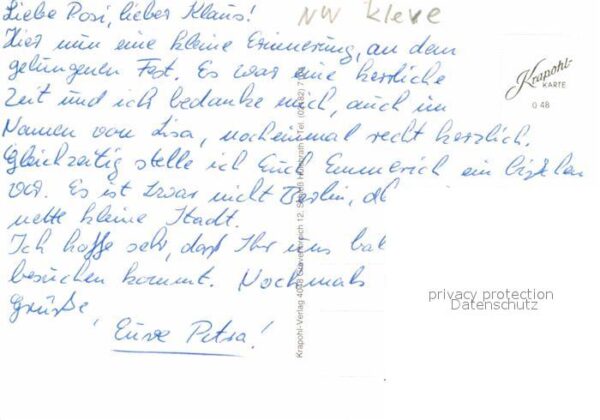 Liebe Rosi, lieber Klaus!
NW Kleve
Hier nun eine kleine Erinnerung, an dem
gelungenen Fest. Es war eine herrliche
Zeit und ich bedanke mich, auch im
Namen von Lisa, nocheinmal recht herzlich.
Gleichzeitig stelle ich Euch Emmerich ein bißchen
vor. Es ist zwar nicht Berlin,
nette kleine Stadt.
Ich hoffe sehr, daß Ihr uns bal
besuchen kommt. Nochmals
Grüße,
Eure Petra!
Krapohl-
KARTE
0 48
Krapohl-Verlag
privacy protection
Datenschutz